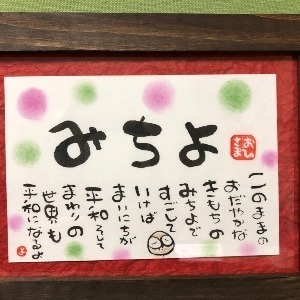 みちよ
おひさま
このままの
おだやかな
きもちの
みちよで
すごして
いけば
まいにちが
平和そして
まわりの
世界も
平和になるよ